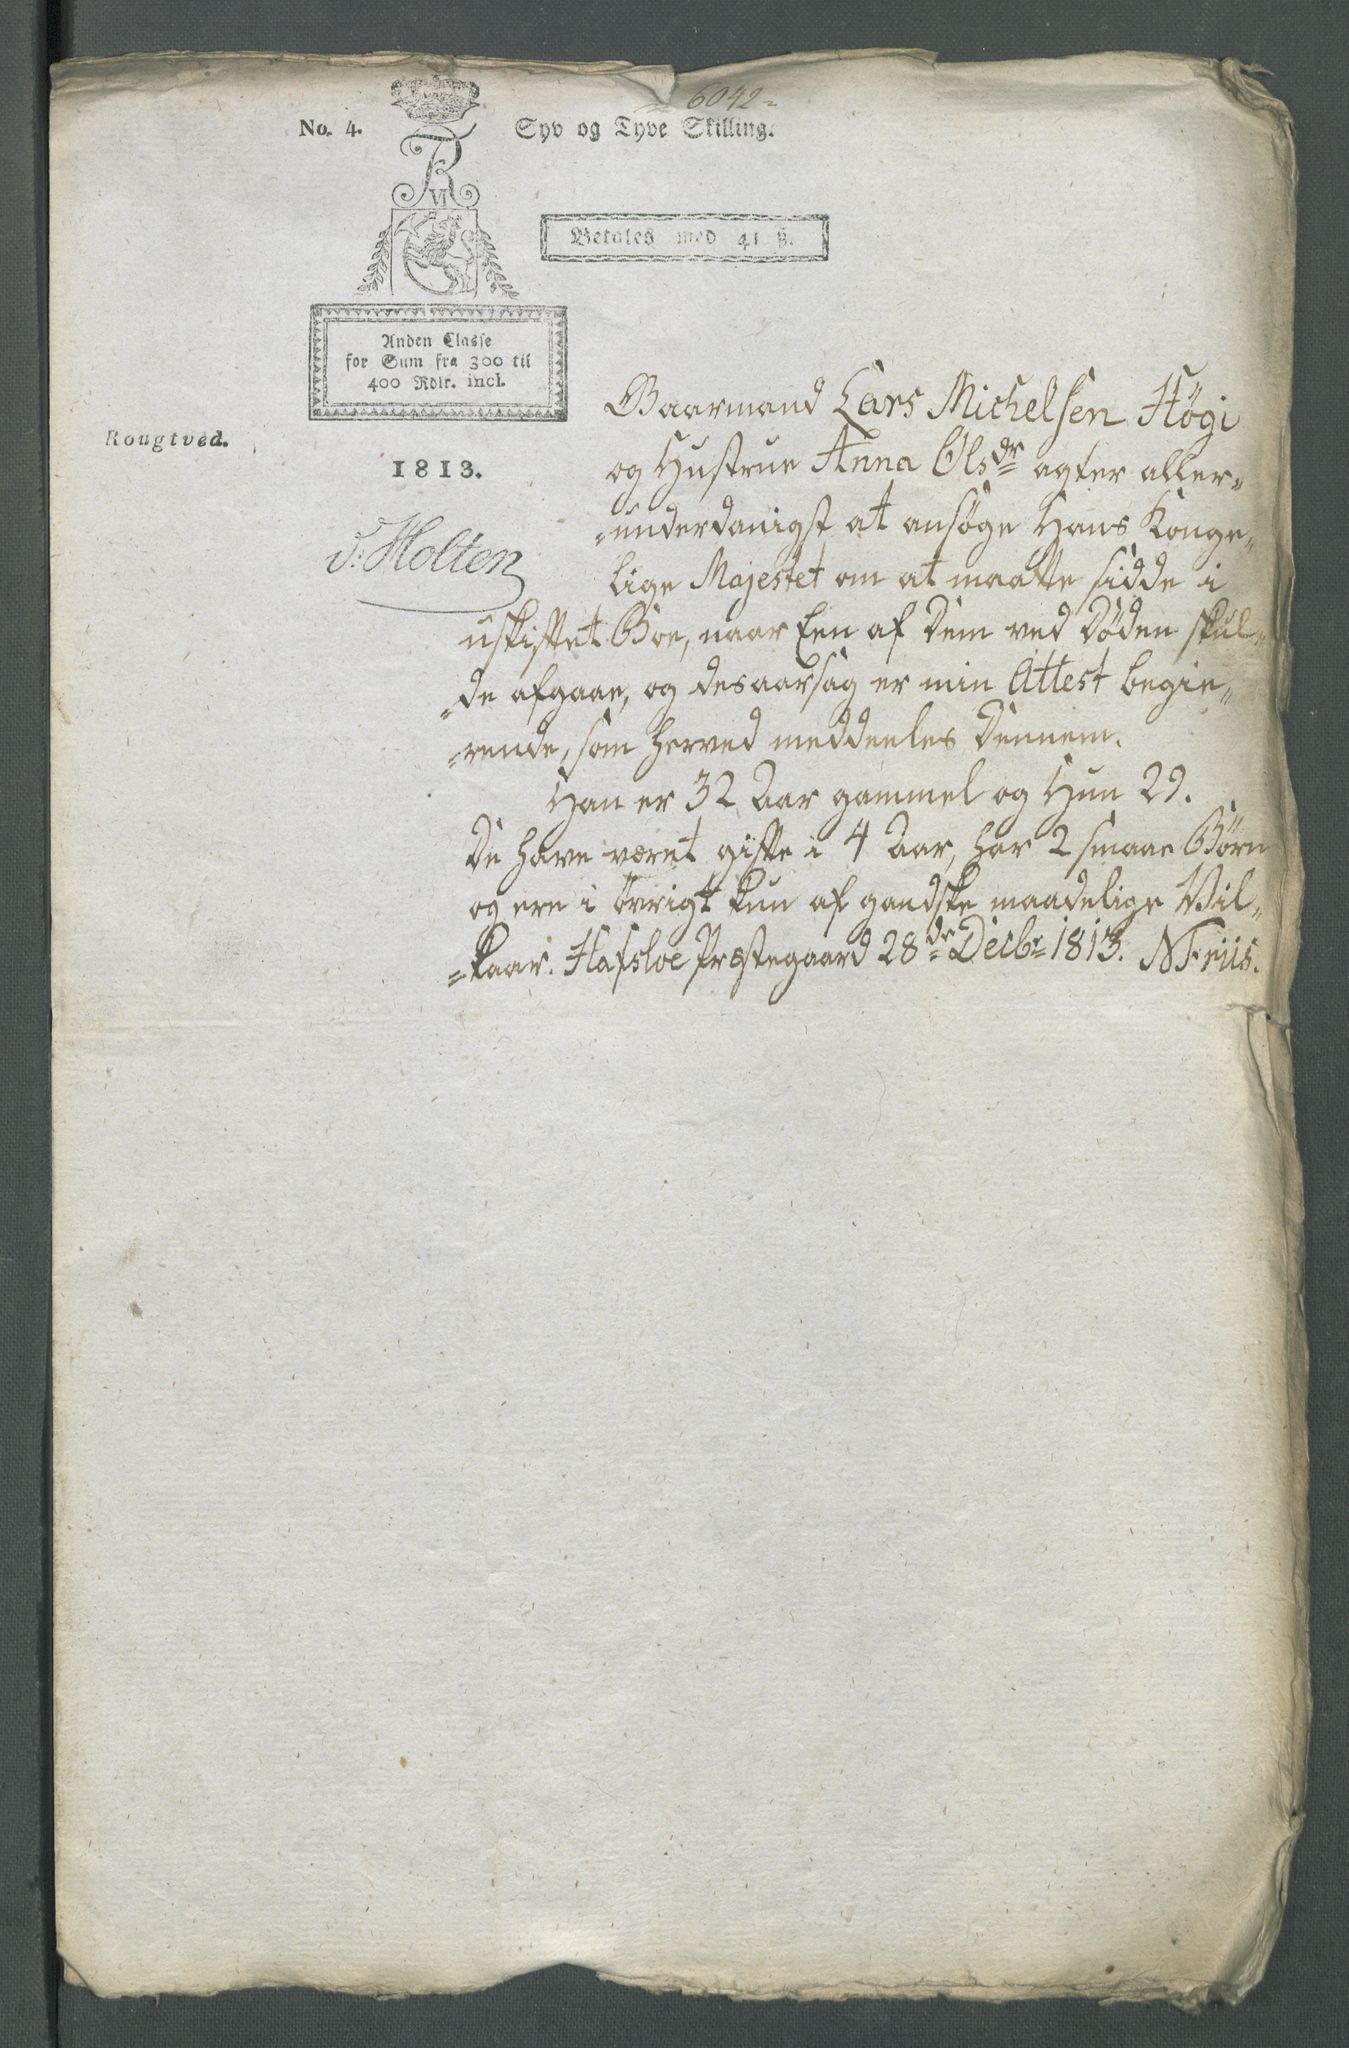 = 6042 =
No. 4.
Syv og Tyve Skilling.
VI
Betales med 41 ß.
Anden Classe
for Sum fra 300 til
400 Rdlr. incl.
Rougtved.
1813.
v. Holten
Gaarmand Lars Michelsen Högi
og Hustrue Anna Olsdr agter aller-
underdanigst at ansøge Hans Konge-
lige Majestet om at maatte sidde i
uskiftet Boe, naar Een af Dem ved Döden skul-
de afgaae, og desaarsag er min Attest begie-
rende, som herved meddeeles Dennem.
Han er 32 Aar gammel og Hun 29.
De have været gifte i 4 Aar, har 2 smaae Börn
og ere i övrigt kun af gandske maadelige Vil-
kaar. Hafsloe Præstegaard 28de Decbr 1813. N Friis.